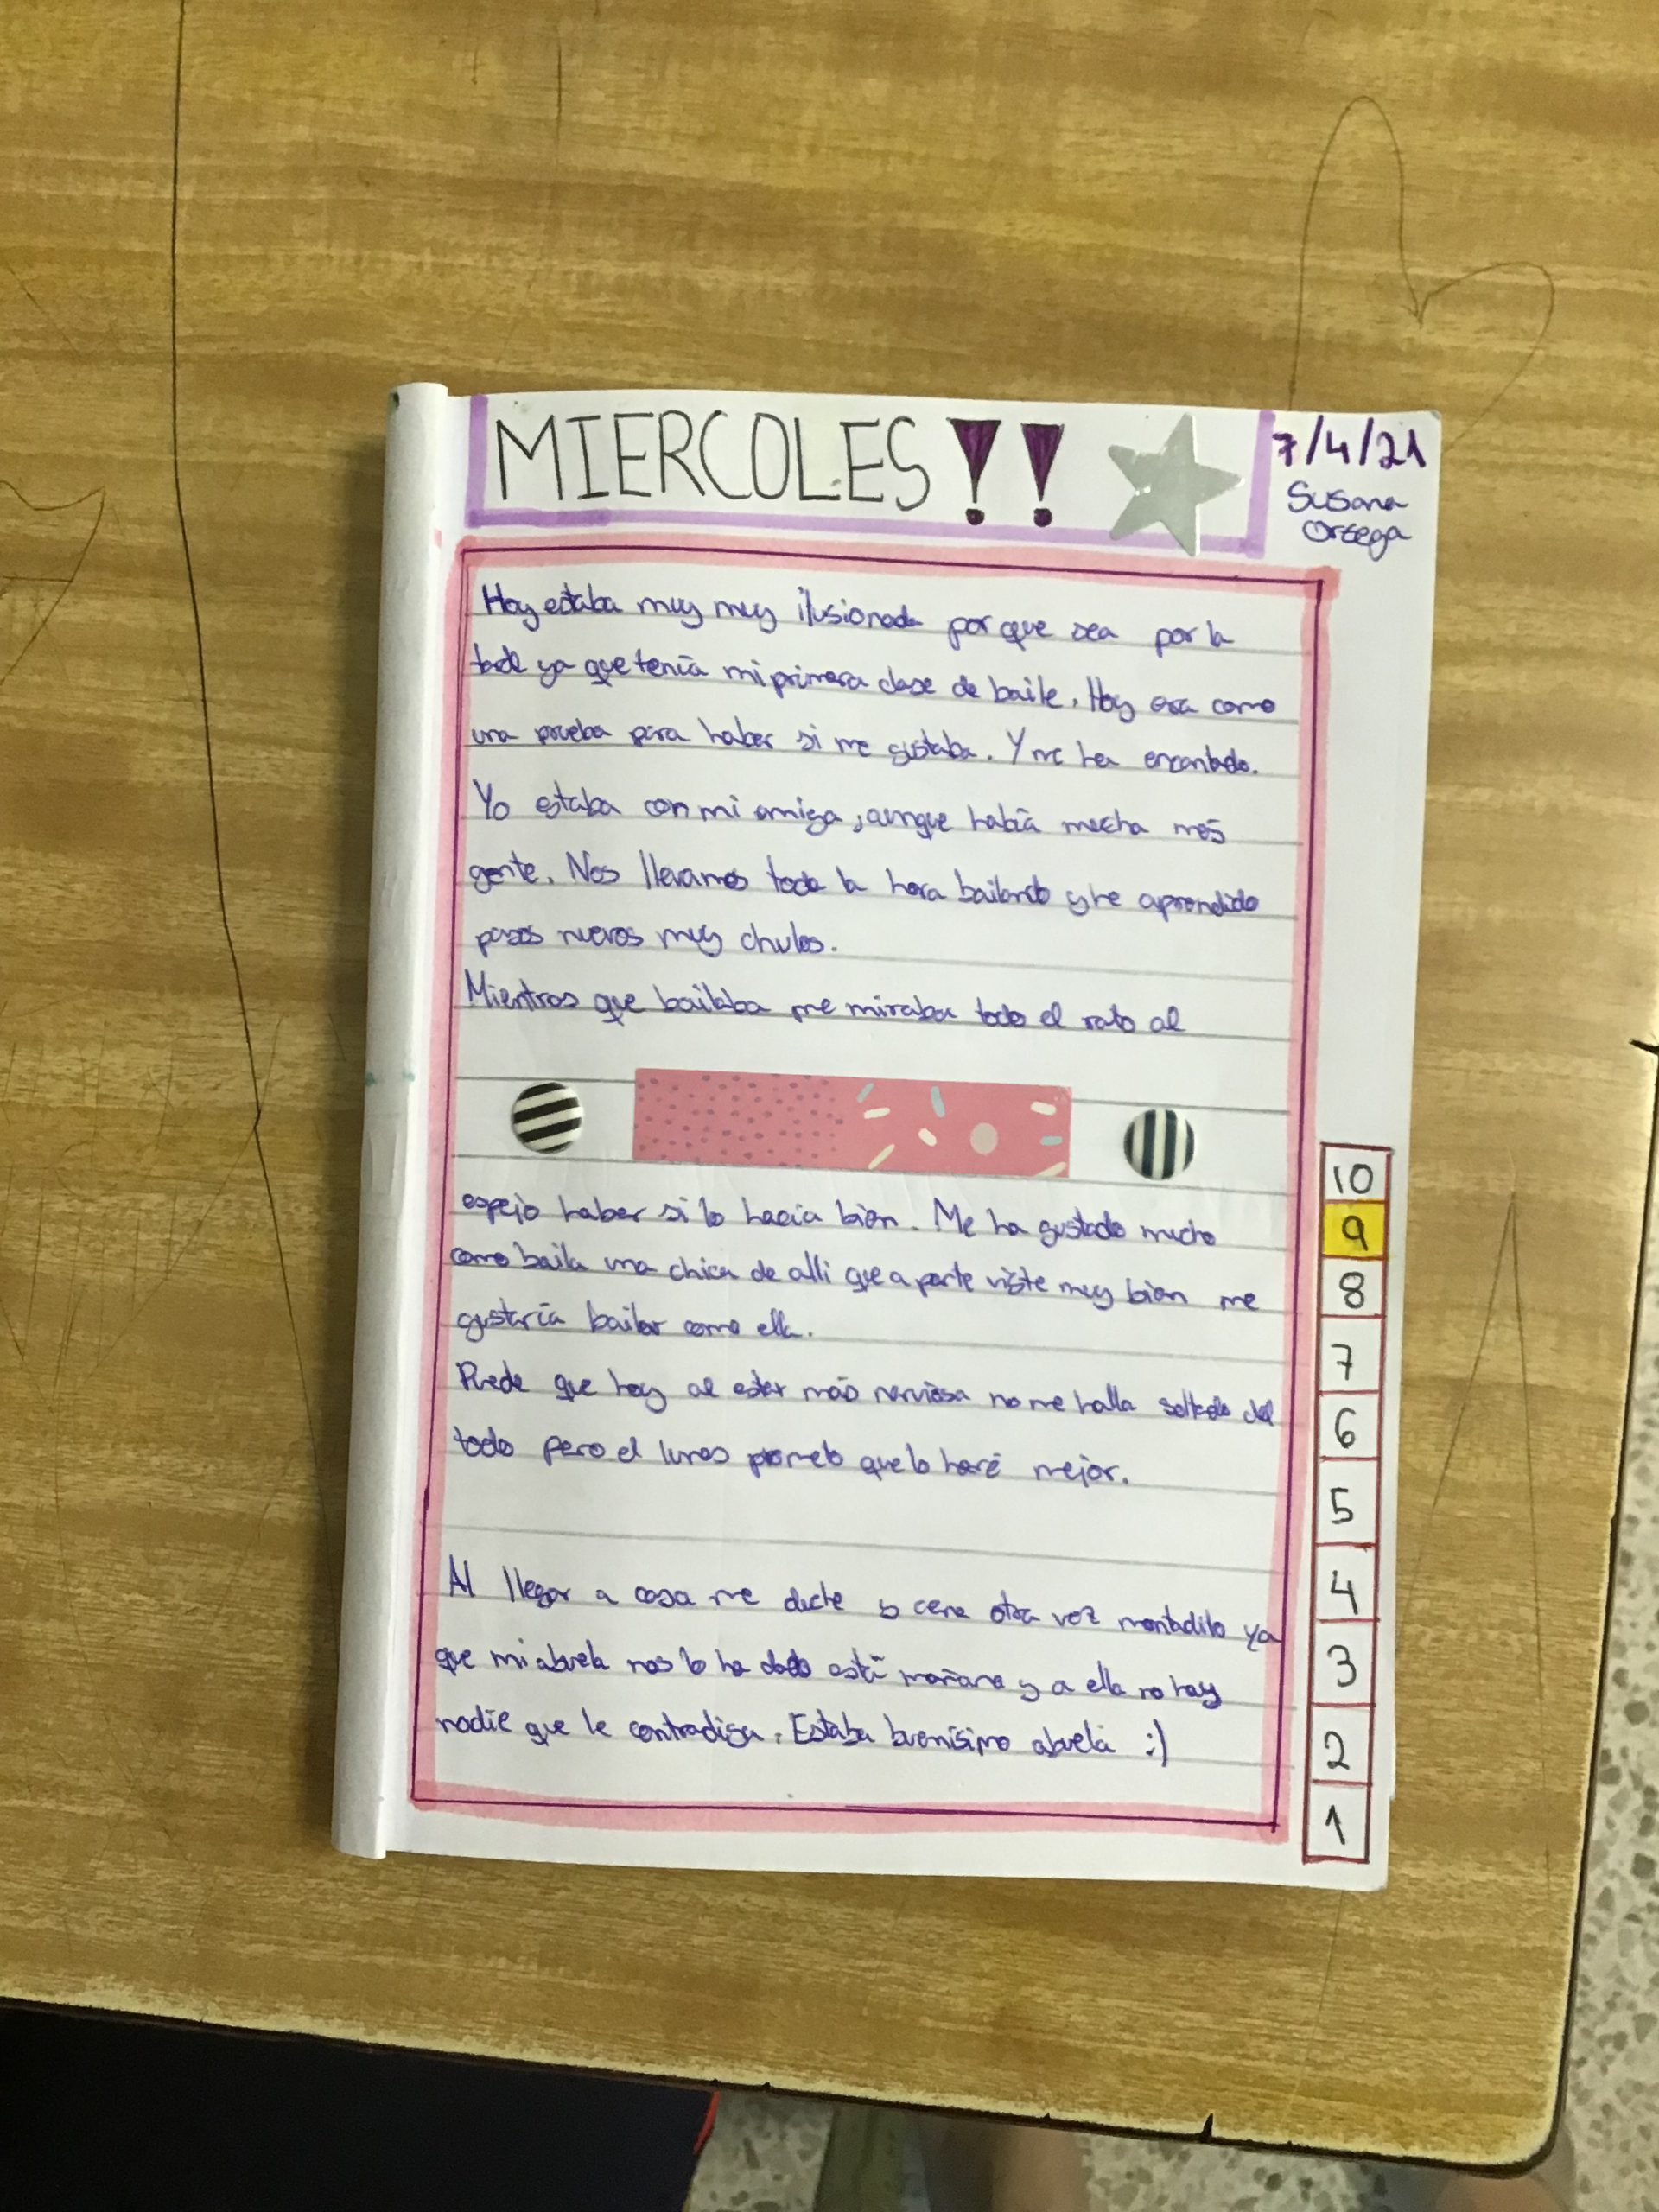 MIERCOLES !!
7/4/21
Susana
Ortega
Hoy estaba muy muy ilusionada por que sea por la
tarde ya que tenía mi primera clase de baile. Hoy era como
una prueba para haber si me gustaba. Y me ha encantado.
Yo estaba con mi amiga, aunque había mucha más
gente. Nos llevamos toda la hora bailando y he aprendido
pasos nuevos muy chulos.
Mientras que bailaba me miraba todo el rato al
espejo haber si lo hacía bien. Me ha gustado mucho
como baila una chica de alli que a parte viste muy bien me
gustaría bailar como ella.
Puede que hoy al estar más nerviosa no me halla soltado del
todo pero el lunes prometo que lo haré mejor.
Al llegar a casa me duche y cene otra vez montadito ya
que mi abuela nos lo ha dado está mañana y a ella no hay
nadie que le contradiga. Estaba buenísimo abuela :)
10
9
8
7
6
5
4
3
2
1